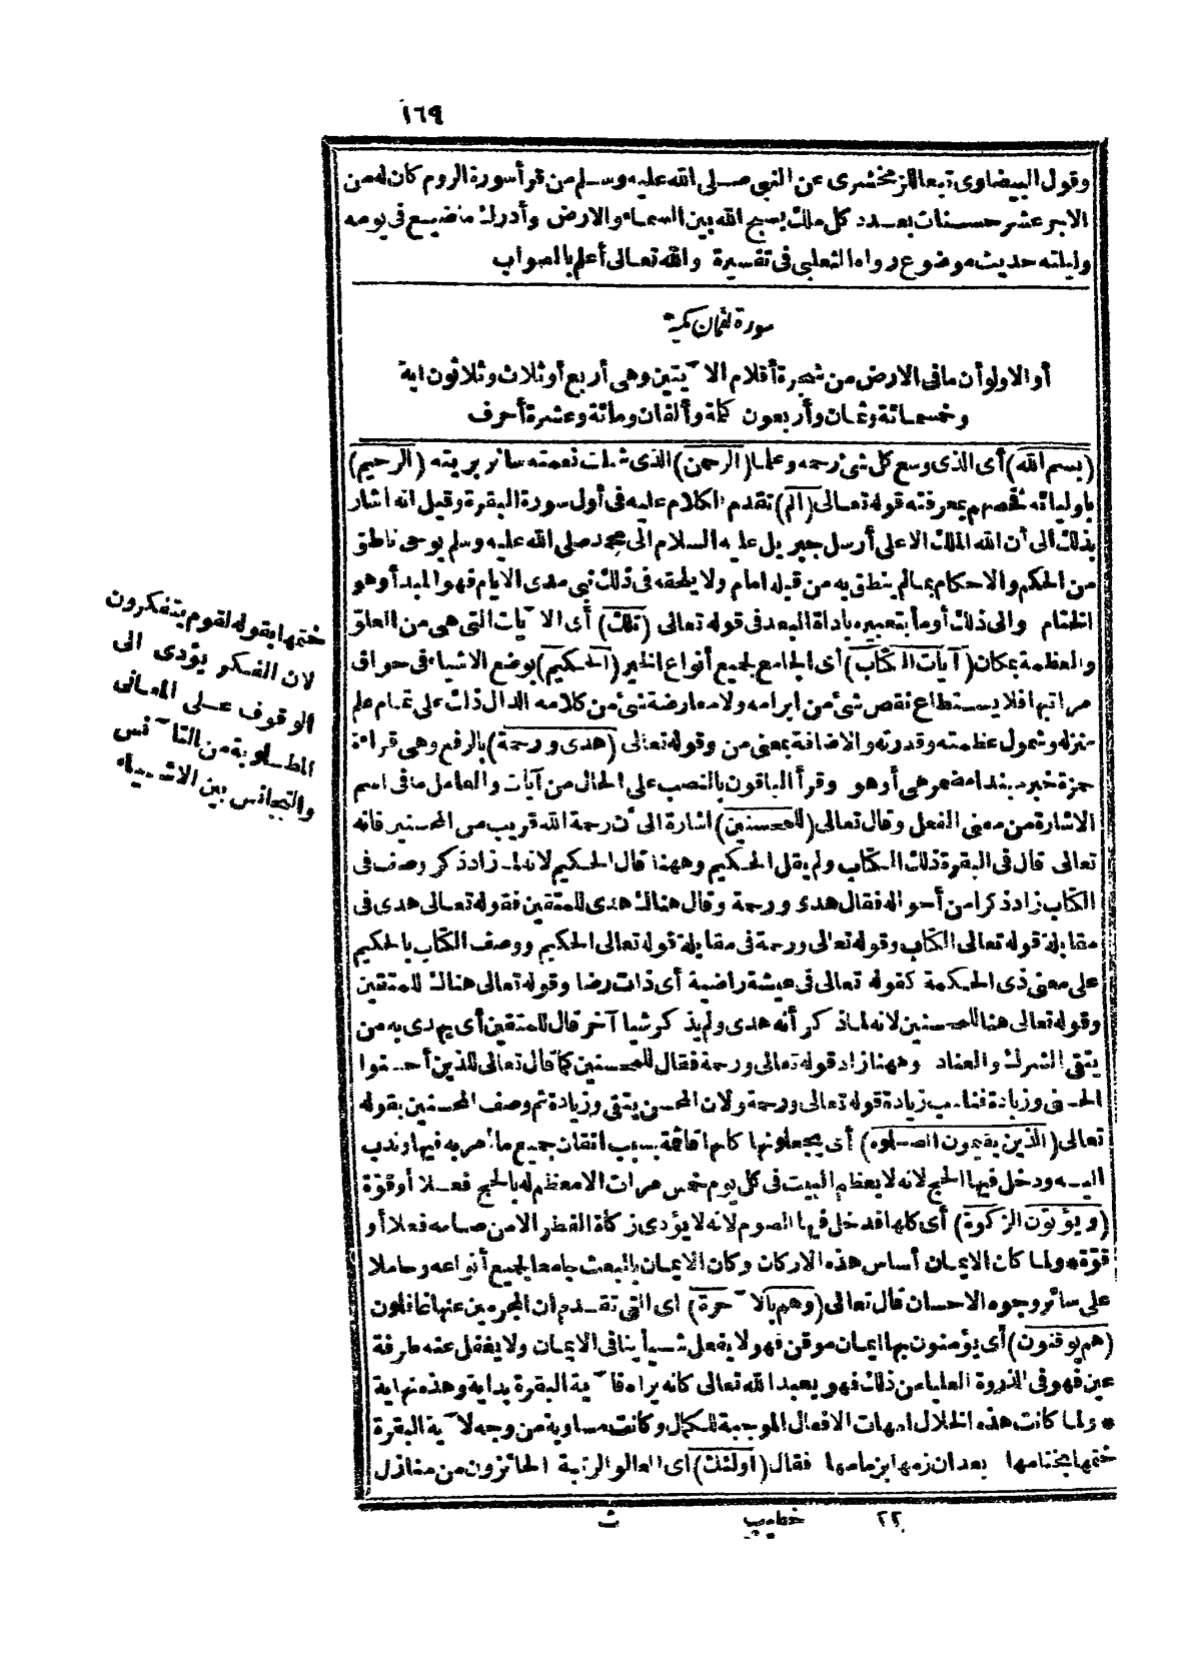 ١٦٩
وقول البيضاوى تبعا للزمخشرى عن النبى صلى الله عليه وسلم من قرأ سورة الروم كان له من
الاجر عشر حسنات بعدد كل ملك يسبح الله بين السماء والارض وأدرك ماضيع فى يومه
وليلته حديث موضوع رواه الثعلبى فى تفسيره والله تعالى أعلم بالصواب
سورة لقمان مكية
أو الا ولو أن مافى الارض من شجرة أقلام الا ٓيتين وهى أربع أو ثلاث وثلاثون اية
وخمسمائة وثمان وأربعون كلمة وألفان ومائة وعشرة أحرف
(بسم الله) أى الذى وسع كل شئ رحمة وعلما (الرحمن) الذى شملت نعمته سائر بريته (الرحيم)
بأوليائه فخصهم بمعرفته قوله تعالى (الم) تقدم الكلام عليه فى أول سورة البقرة وقيل انه اشار
بذلك الى أن الله الملك الاعلى أرسل جبريل عليه السلام الى محمد صلى الله عليه وسلم بوحى ناطق
من الحكم والاحكام بمالم ينطق به من قبله امام ولا يلحقه فى ذلك نبى مدى الايام فهو المبدأ وهو
الختام والى ذلك أومأ بتعبيره باداة البعد فى قوله تعالى (تلك) أى الا ٓيات التى هى من العلوّ
والعظمة بمكان (آيات الكتاب) أى الجامع لجميع أنواع الخير (الحكيم) بوضع الاشياء فى حواق
مراتبها فلا يستطاع نقص شئ من ابرامه ولا معارضة شئ من كلامه الدال ذلك على تمام علم
منزله وشمول عظمته وقدرته والاضافة بمعنى من وقوله تعالى (هدى ورحمة) بالرفع وهى قراءة
حمزة خبر مبتدا مضمر هى أو هو وقرأ الباقون بالنصب على الحال من آيات والعامل مافى اسم
الاشارة من معنى الفعل وقال تعالى (للمحسنين) اشارة الى أن رحمة الله قريب من المحسنين فانه
تعالى قال فى البقرة ذلك الكتاب ولم يقل الحكيم وههنا قال الحكيم لانه لما زاد ذكر وصف فى
الكتاب زاد ذكرا من أحواله فقال هدى ورحمة وقال هناك هدى للمتقين فقوله تعالى هدى فى
مقابلة قوله تعالى الكتاب وقوله تعالى ورحمة فى مقابلة قوله تعالى الحكيم ووصف الكتاب بالحكيم
على معنى ذى الحكمة كقوله تعالى فى عيشة راضية أى ذات رضا وقوله تعالى هناك للمتقين
وقوله تعالى هنا للمحسنين لانه لما ذكر أنه هدى ولم يذكر شيا آخر قال للمتقين أى يهدى به من
يتقى الشرك والعناد وههنا زاد قوله تعالى ورحمة فقال للمحسنين كما قال تعالى للذين أحسنوا
الحسنى وزيادة فناسب زيادة قوله تعالى ورحمة ولان المحسن يتقى وزيادة ثم وصف المحسنين بقوله
تعالى (الذين يقيمون الصلوة) أى يجعلونها كانها قائمة بسبب اتقان جميع ما أمر به فيها وندب
اليه ودخل فيها الحج لانه لا يعظم البيت فى كل يوم خمس مرات الا معظم له بالحج فعلا أو قوّة
(ويؤتون الزكوة) أى كلها فدخل فيها الصوم لانه لا يؤدى زكاة الفطر الا من صامه فعلا أو
قوّة * ولما كان الايمان أساس هذه الاركان وكان الايمان بالبعث جامعا لجميع أنواعه وحاملا
على سائر وجوه الاحسان قال تعالى (وهم بالا ٓخرة) اى التى تقدم ان المجرمين عنها غافلون
(هم يوقنون) أى يؤمنون بها ايمان موقن فهو لا يفعل شيأ ينافى الايمان ولا يغفل عنه طرفة
عين فهو فى الذروة العليا من ذلك فهو يعبد الله تعالى كانه يراه فا ٓية البقرة بداية وهذه نهاية
* ولما كانت هذه الخلال امهات الافعال الموجبة للكمال وكانت مساوية من وجه لا ٓية البقرة
ختمها بختامها بعد ان زمها بزمامها فقال (اولئك) اى العالو الرتبة الحائزون من منازل
ختمها بقوله لقوم يتفكرون
لان الفكر يؤدى الى
الوقوف على المعانى
المطلوبة من التا ٓنس
والتجانس بين الاشياء
٢٢ خطيب ث